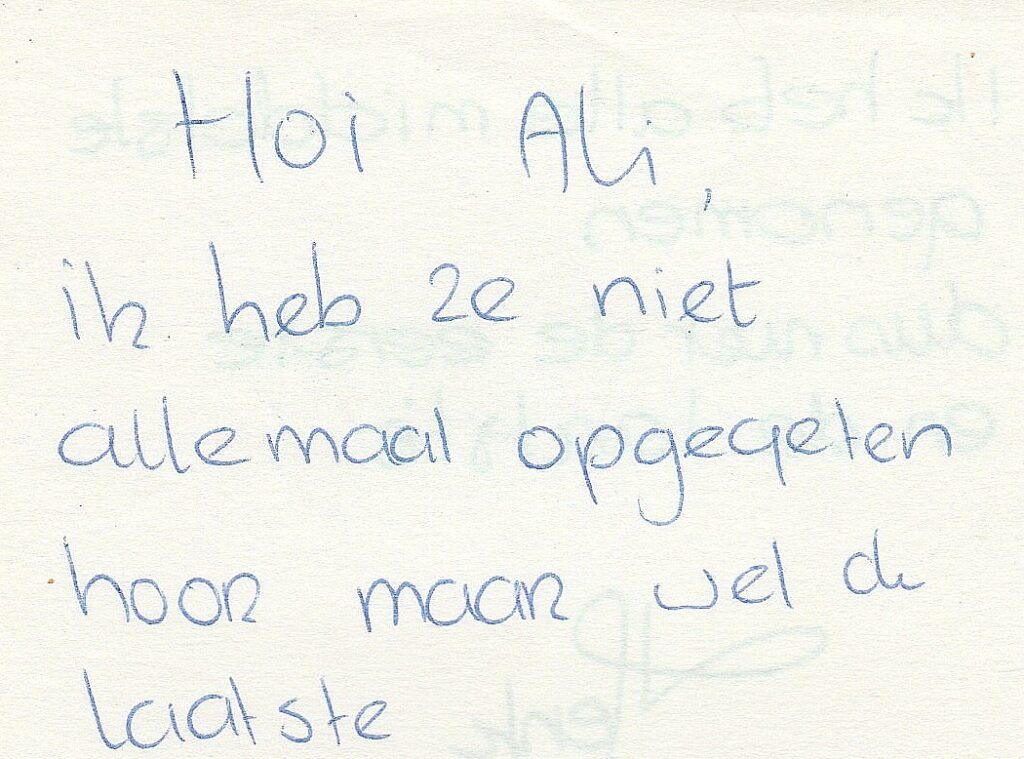 Hoi Ali,
ik heb ze niet
allemaal opgegeten
hoor maar wel de
laatste